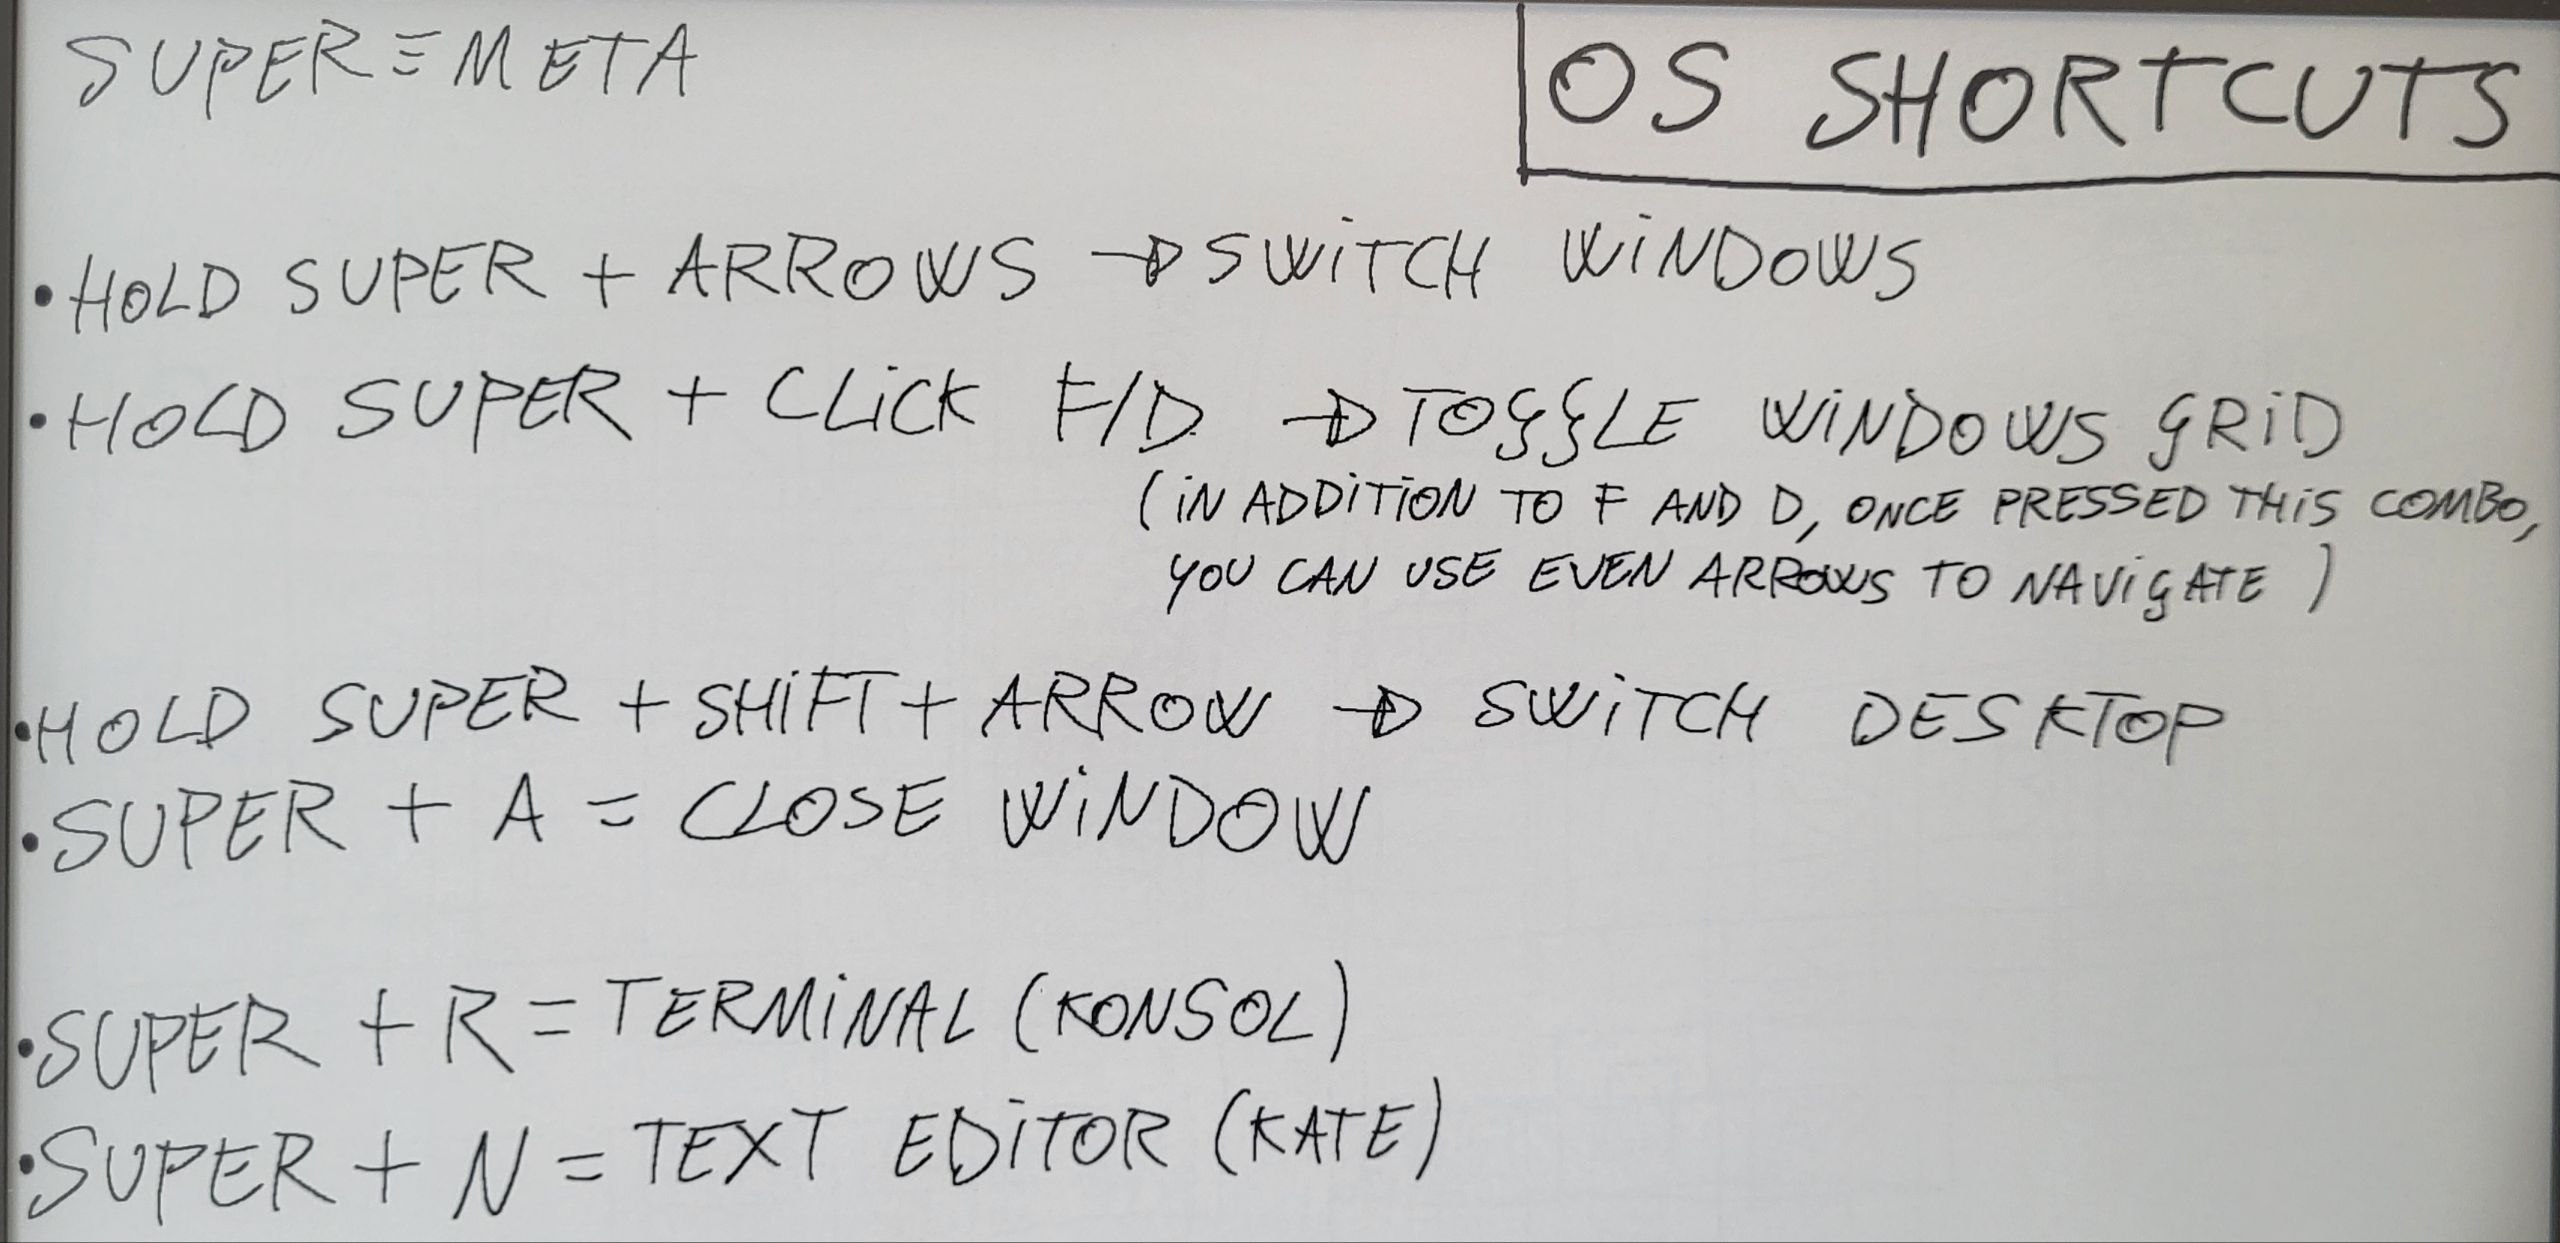 SUPER≡META
OS SHORTCUTS
•HOLD SUPER + ARROWS → SWiTCH WiNDOWS
•HOLD SUPER + CLiCK F/D → TOGGLE WiNDOWS GRiD
(iN ADDiTiON TO F AND D, ONCE PRESSED THiS COMBO,
YOU CAN USE EVEN ARROWS TO NAViGATE)
•HOLD SUPER + SHiFT + ARROW → SWiTCH DESKTOP
•SUPER + A = CLOSE WiNDOW
•SUPER + R = TERMiNAL (KONSOL)
•SUPER + N = TEXT EDiTOR (KATE)